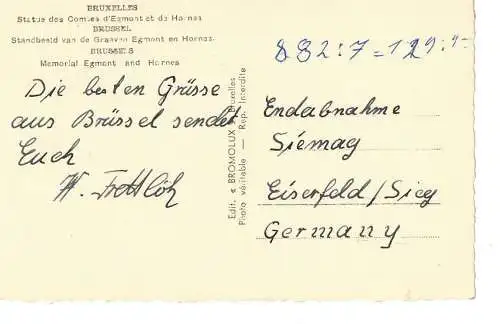 BRUXELLES
Statue des Comtes d'Egmont et de Hornes
BRUSSEL
Standbeeld van de Graaven Egmont en Hornes.
BRUSSELS
Memorial Egmont and Hornes
Die besten Grüsse
aus Brüssel sendet
Euch
W. Frettlöh
Edit. « BROMOLUX » Bruxelles
Photo véritable — Rep. Interdite
882:7=129:4=
Endabnahme
Siemag
Eiserfeld/Sieg
Germany